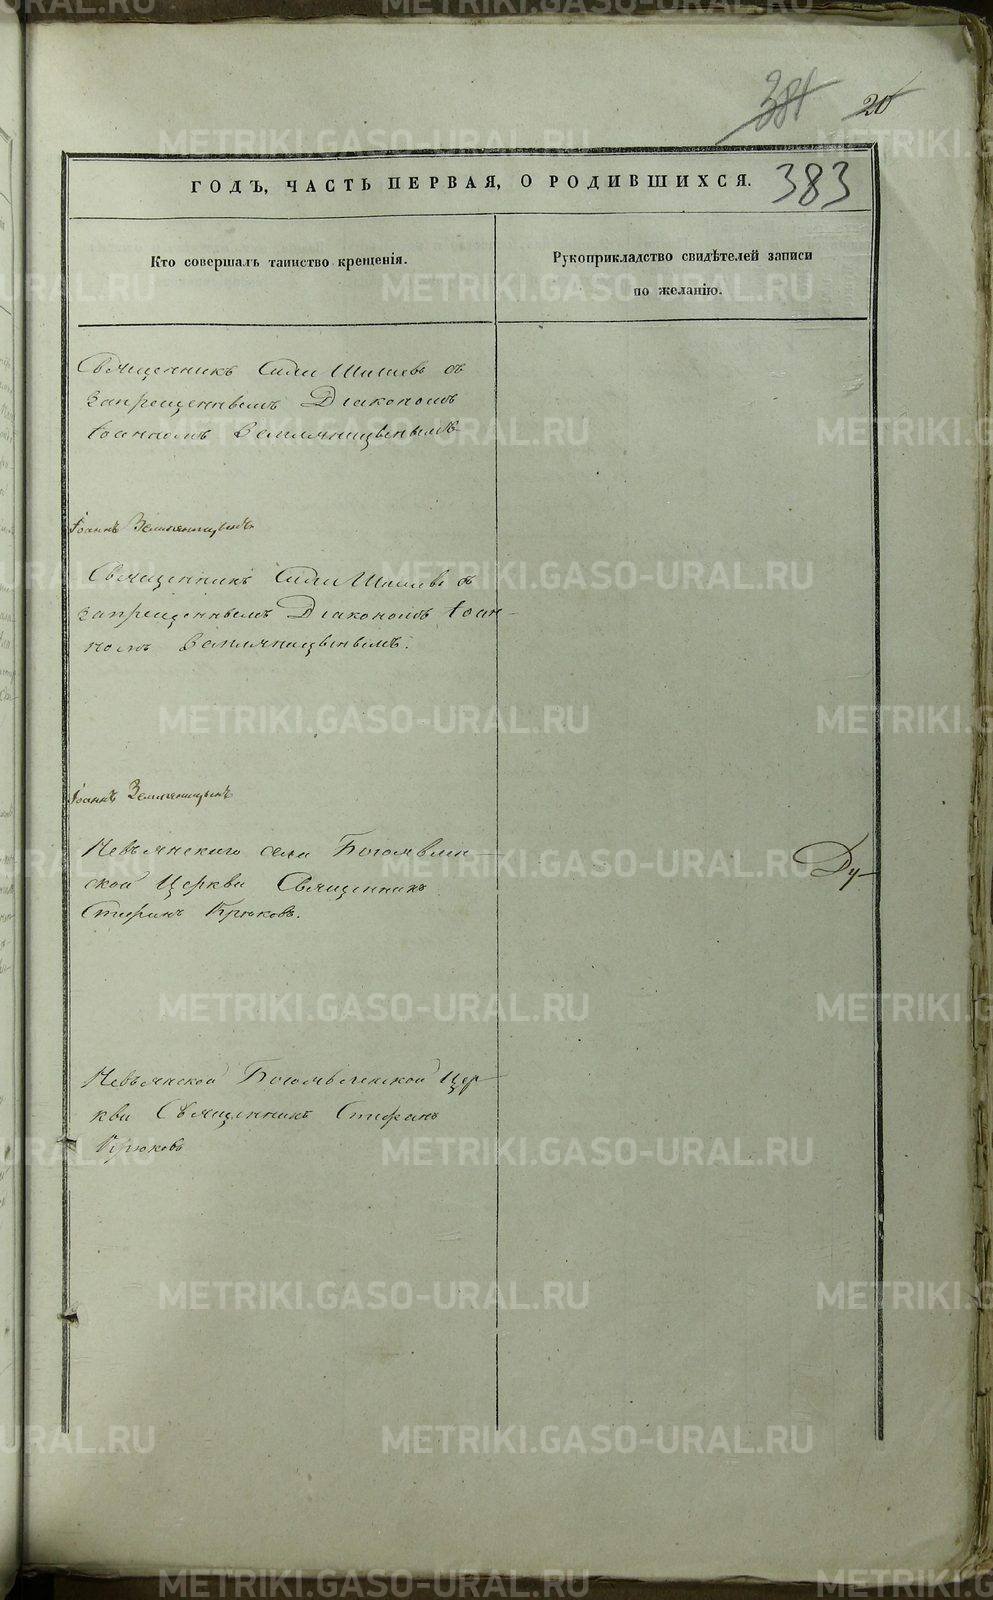 381 20
ГОДЪ, ЧАСТЬ ПЕРВАЯ, О РОДИВШИХСЯ. 383
Кто совершалъ таинство крещенія.
Рукоприкладство свидѣтелей записи
по желанію.
Священникъ Сила Шишевъ съ
запрещеннымъ Діакономъ
Іоанномъ Земляницынымъ
Іоаннъ Земляницынъ
Священникъ Сила Шишевъ съ
запрещеннымъ Діакономъ Іоан-
номъ Земляницынымъ.
Іоаннъ Земляницынъ
Невьянскаго села Богоявлен-
ской Церкви Священникъ
Стефанъ Крюковъ.
Ду-
Невьянской Богоявленской Цер-
кви Священникъ Стефанъ
Крюковъ
METRIKI.GASO-URAL.RU